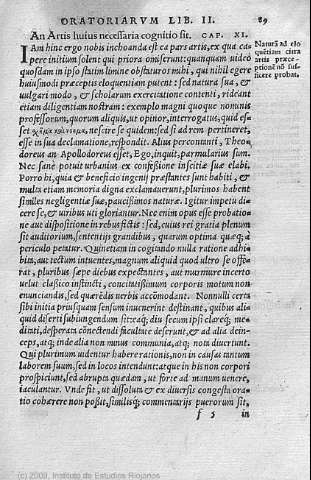 ORATORIARVM LIB. II. 89
An Artis huius necessaria cognitio sit. CAP. XI.
IAm hinc ergo nobis inchoanda est ea pars artis, ex qua ca
pere initium solent: qui priora omiserunt: quanquam uideo
quosdam in ipso statim limine obstaturos mihi, qui nihil egere
huiusmodi præceptis eloquentiam putent: sed natura sua, &
uulgari modo, & scholarum exercitatione contenti, rideant
etiam diligentiam nostram: exemplo magni quoque nominis
professorum, quorum aliquis, ut opinor, interrogatus, quid es-
set, nescire se quidem: sed si ad rem pertineret,
esse in sua declamatione, respondit. Alius percontanti, Theo
doreus an Apollodoreus esset, Ego, inquit, parmularius sum.
Nec sanè potuit urbanius ex confessione inscitiæ suæ elabi.
Porro hi, quia & beneficio ingenij præstantes sunt habiti, &
multa etiam memoria digna exclamauerunt, plurimos habent
similes negligentiæ suæ, paucissimos naturæ. Igitur impetu di
cere se, & uiribus uti gloriantur. Nec enim opus esse probatio-
ne aut dispositione in rebus fictis: sed, cuius rei gratia plenum
sit auditorium, sententijs grandibus, quarum optima quæq; à
periculo petatur. Quinetiam in cogitando nulla ratione adhi-
bita, aut tectum intuentes, magnum aliquid quod ultro se offe-
rat, pluribus sæpe diebus expectantes, aut murmure incerto
uelut classico instincti, concitatissimum corporis motum non
enunciandis, sed quærendis uerbis accomodant. Nonnulli certa
sibi initia priusquam sensum inuenerint destinant, quibus ali
quid diserti subiungendum sit: eaq; diu secum ipsi clareq; me-
ditati, desperata conectendi facultate deserunt, & ad alia dein-
ceps, atq; inde alia non minus communia, atq; nota diuertunt.
Qui plurimum uidentur habere rationis, non in causas tamen
laborem suum, sed in locos intendunt: atque in his non corpori
prospiciunt, sed abrupta quædam, ut forte ad manum uenere,
iaculantur. Vnde fit, ut dissoluta & ex diuersis congesta ora-
tio cohærere non possit, similisq; commentarijs puerorum sit,
f 5 in
Naturā ad elo
quētiam citra
artis præce-
ptionē nō suf-
ficere probat.
(c) 2009, Instituto de Estudios Riojanos